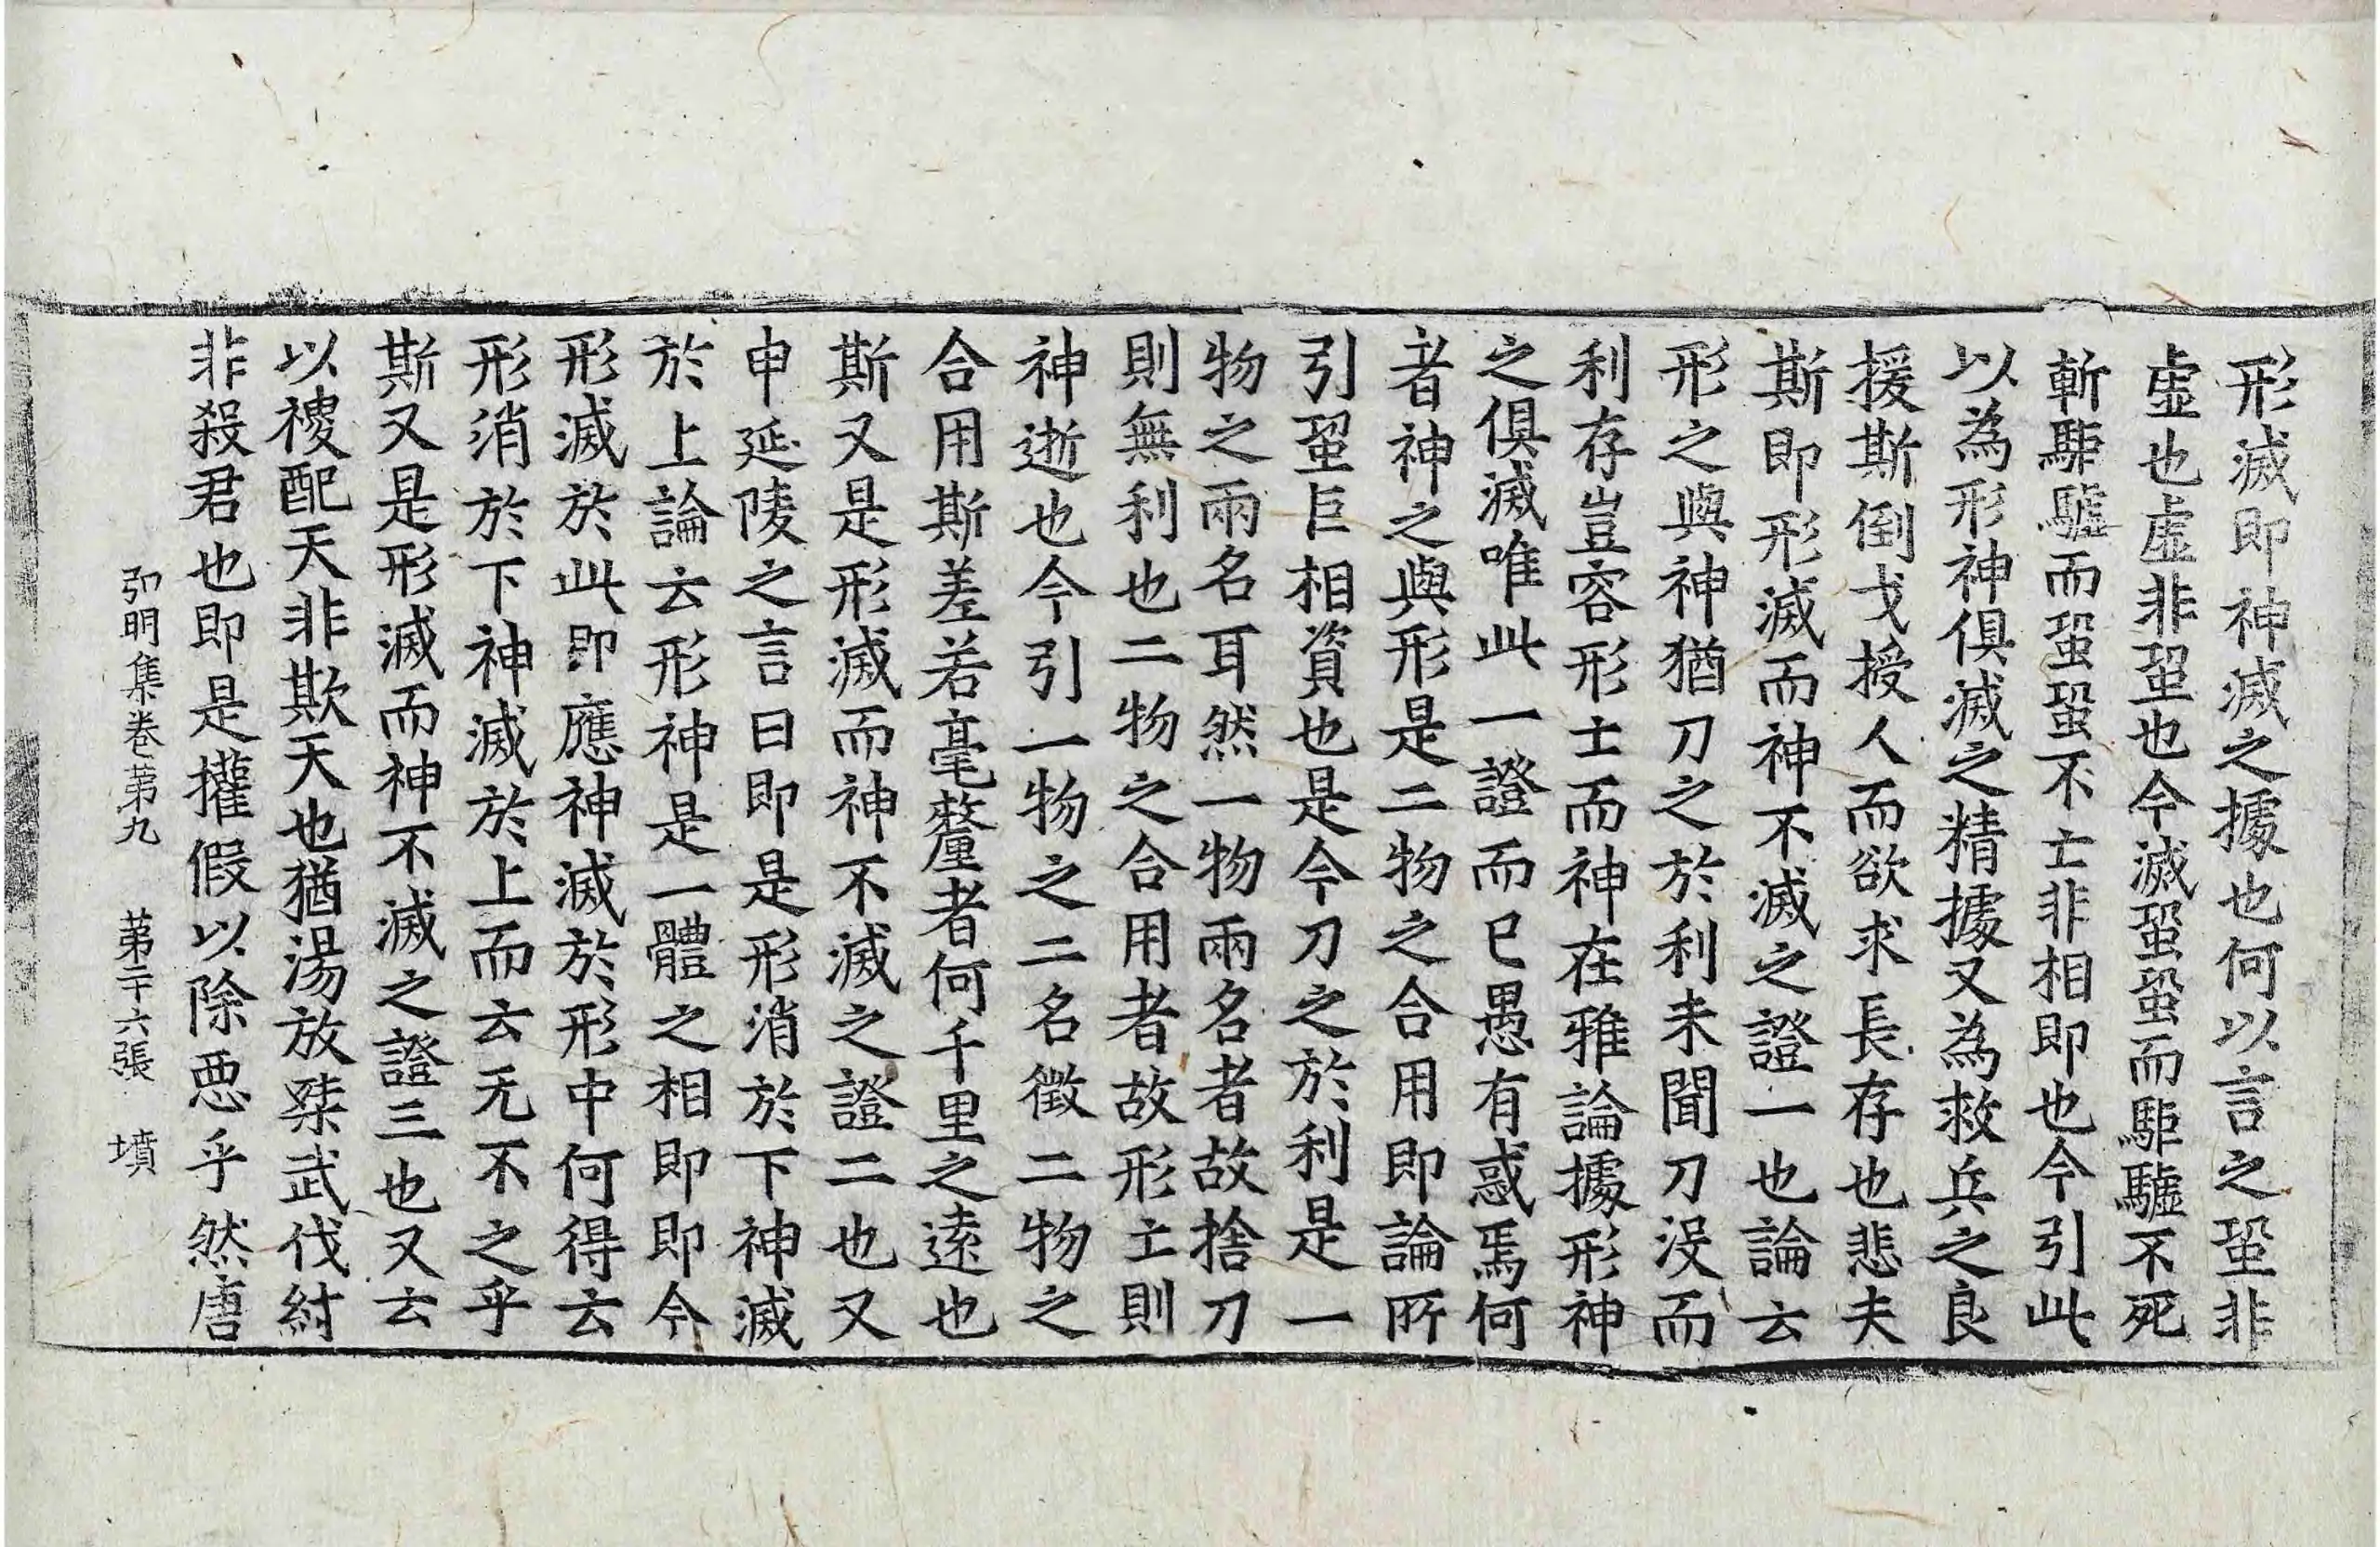 形滅即神滅之據也何以言之蛩非
虛也虛非蛩也今滅蛩蛩而駏驉不死
斬駏驉而蛩蛩不亡非相即也今引此
以為形神俱滅之精據又為救兵之良
援斯倒戈授人而欲求長存也悲夫
斯即形滅而神不滅之證一也論云
形之與神猶刀之於利未聞刀沒而
利存豈容形亡而神在雅論據形神
之俱滅唯此一證而已愚有惑焉何
者神之與形是二物之合用即論所
引蛩巨相資也是今刀之於利是一
物之兩名耳然一物兩名者故捨刀
則無利也二物之合用者故形亡則
神逝也今引一物之二名徵二物之
合用斯差若毫釐者何千里之遠也
斯又是形滅而神不滅之證二也又
申延陵之言曰即是形消於下神滅
於上論云形神是一體之相即即今
形滅於此即應神滅於形中何得云
形消於下神滅於上而云无不之乎
斯又是形滅而神不滅之證三也又云
以稷配天非欺天也猶湯放桀武伐紂
非殺君也即是權假以除惡乎然唐
弘明集卷第九　第二十六張　墳